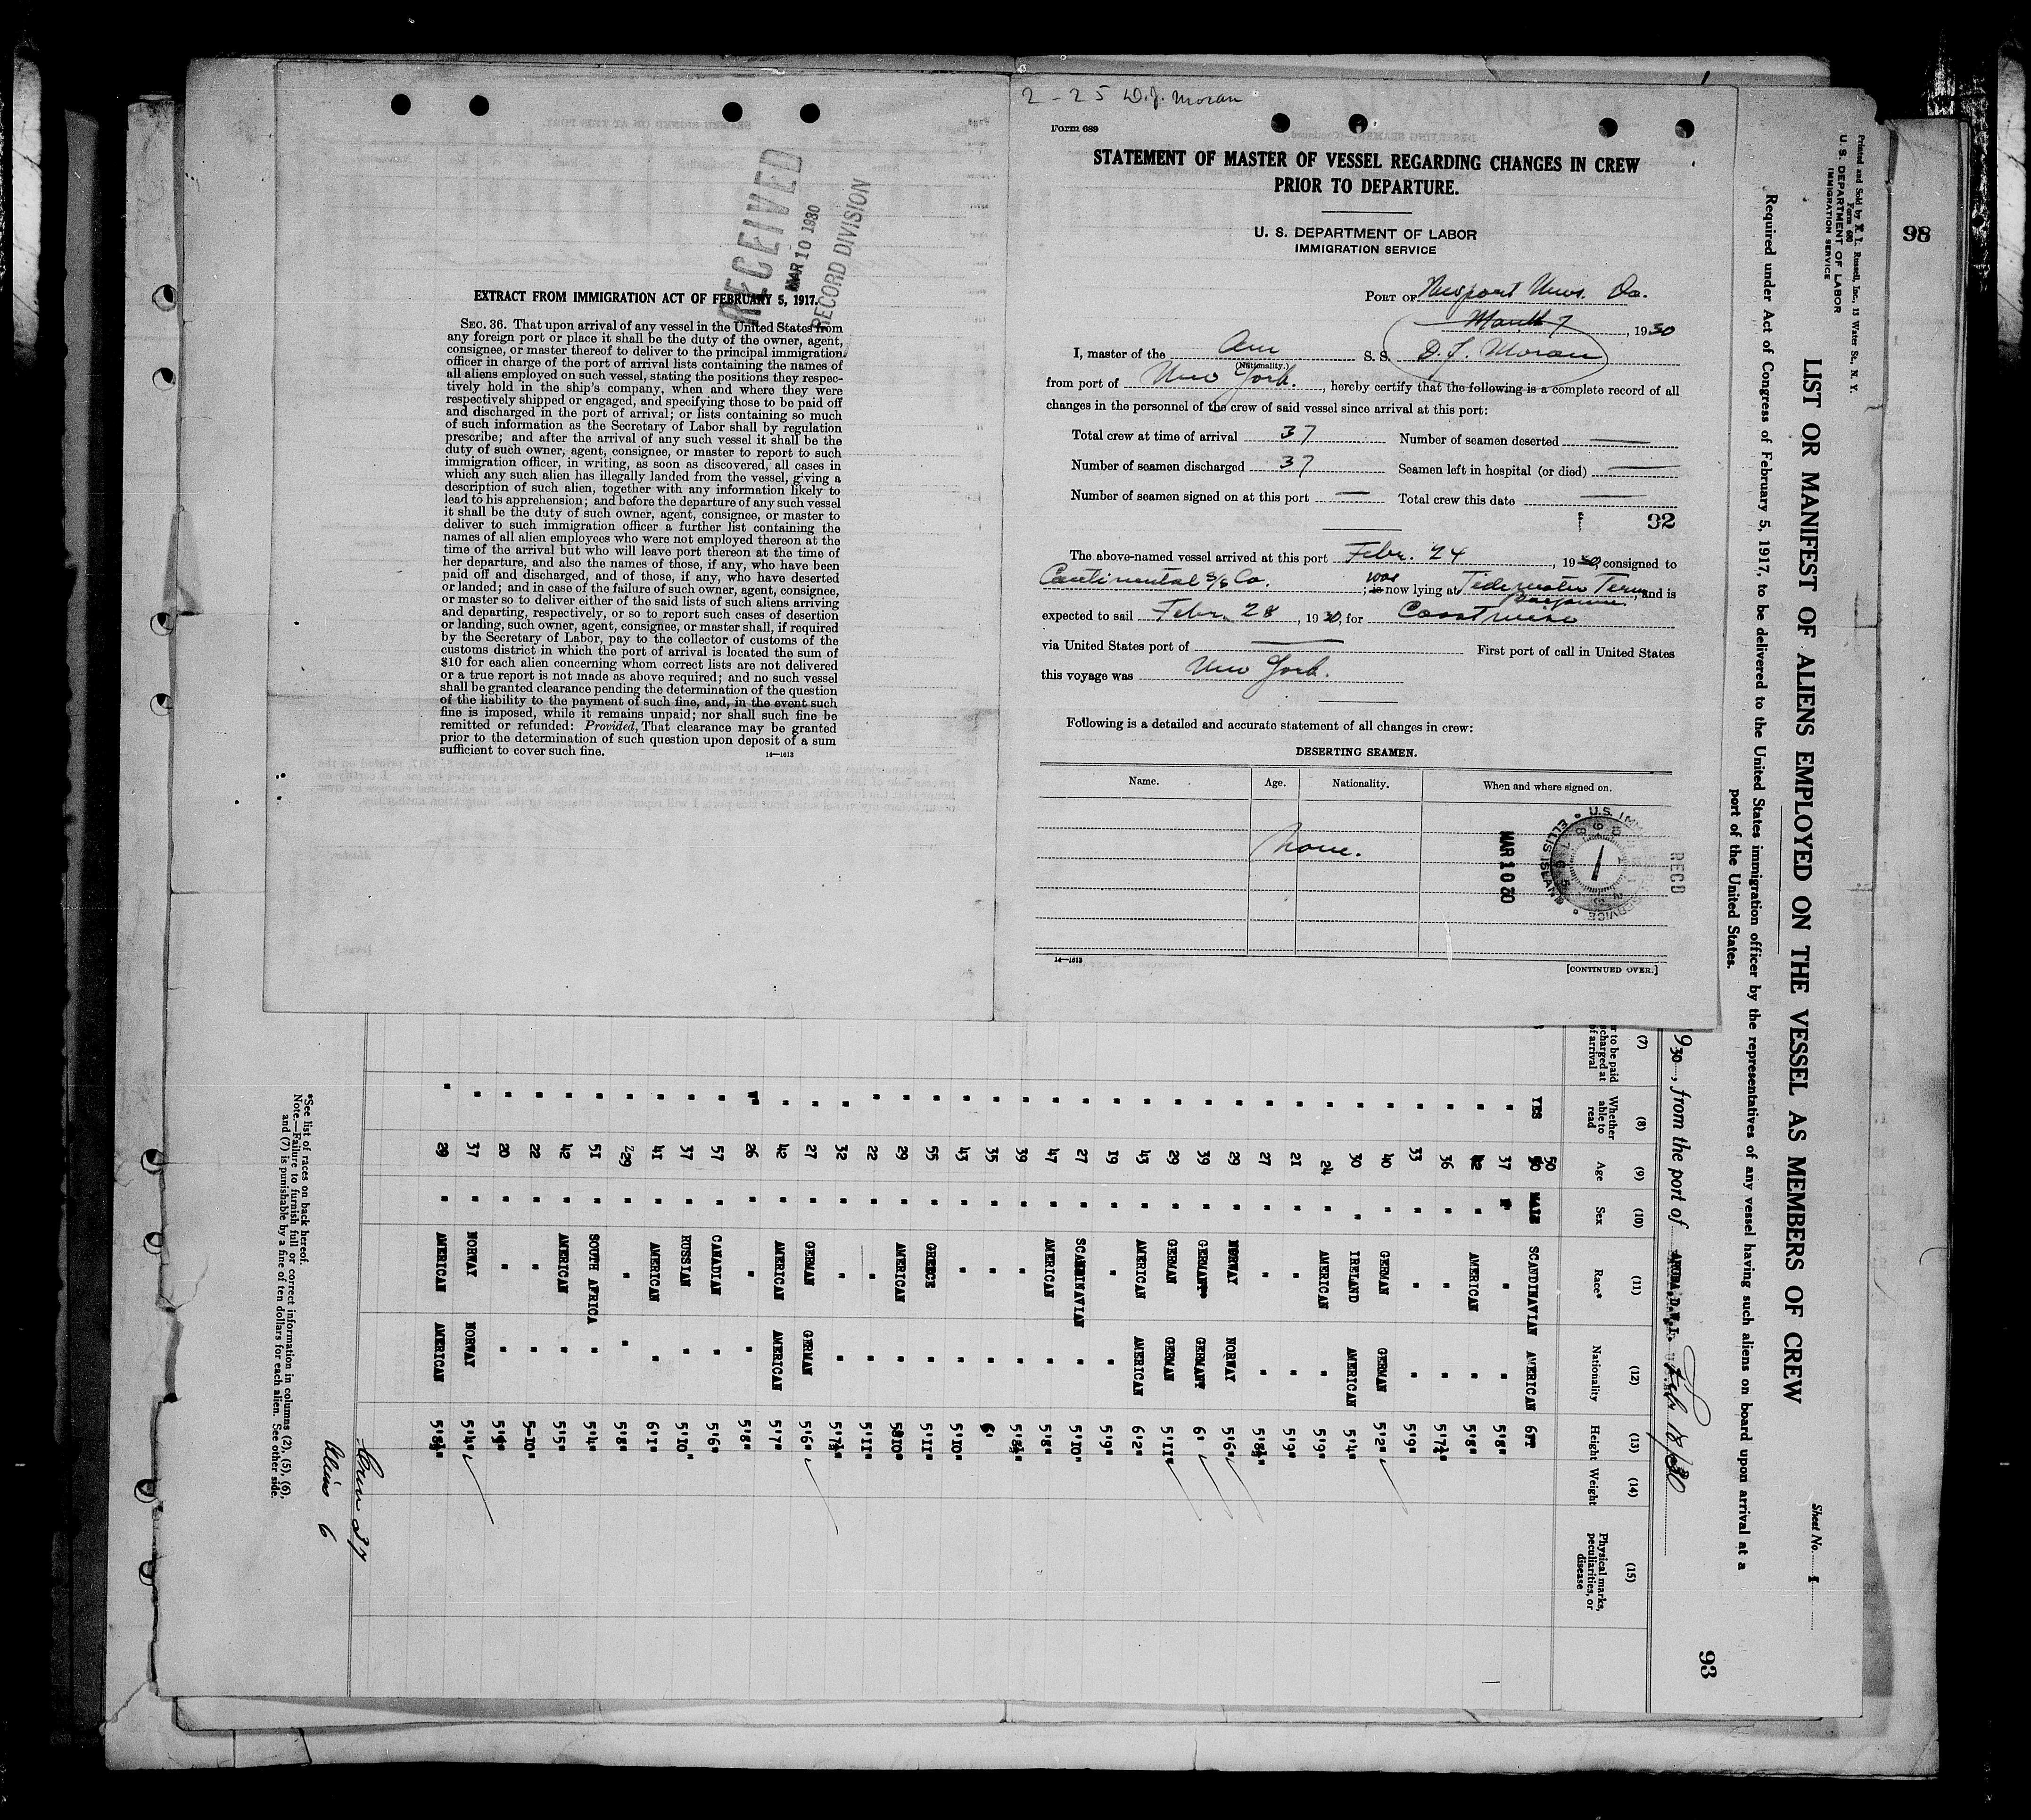 2-25 D.J. Moran
Form 689
STATEMENT OF MASTER OF VESSEL REGARDING CHANGES IN CREW
PRIOR TO DEPARTURE.
U. S. DEPARTMENT OF LABOR
IMMIGRATION SERVICE
PORT OF Newport News. Va.
March 7, 1930
I, master of the Am S. S. D. J. Moran
(Nationality.)
from port of New York., hereby certify that the following is a complete record of all
changes in the personnel of the crew of said vessel since arrival at this port:
Total crew at time of arrival 37 Number of seamen deserted —
Number of seamen discharged 37 Seamen left in hospital (or died) —
Number of seamen signed on at this port — Total crew this date —
92
The above-named vessel arrived at this port Febr. 24, 1930, consigned to
Continental S/S Co.; was is now lying at Tidewater Term, and is
Bayonne
expected to sail Febr. 28, 1930, for Coastwise
via United States port of — First port of call in United States
this voyage was New York.
Following is a detailed and accurate statement of all changes in crew:
DESERTING SEAMEN.
Name. Age. Nationality. When and where signed on.
None.
U.S. IMM SERVICE ELLIS ISLAND
MAR 10 30
RECD
14—1613
[CONTINUED OVER.]
RECEIVED
MAR 10 1930
RECORD DIVISION
EXTRACT FROM IMMIGRATION ACT OF FEBRUARY 5, 1917.
SEC. 36. That upon arrival of any vessel in the United States from
any foreign port or place it shall be the duty of the owner, agent,
consignee, or master thereof to deliver to the principal immigration
officer in charge of the port of arrival lists containing the names of
all aliens employed on such vessel, stating the positions they respec-
tively hold in the ship's company, when and where they were
respectively shipped or engaged, and specifying those to be paid off
and discharged in the port of arrival; or lists containing so much
of such information as the Secretary of Labor shall by regulation
prescribe; and after the arrival of any such vessel it shall be the
duty of such owner, agent, consignee, or master to report to such
immigration officer, in writing, as soon as discovered, all cases in
which any such alien has illegally landed from the vessel, giving a
description of such alien, together with any information likely to
lead to his apprehension; and before the departure of any such vessel
it shall be the duty of such owner, agent, consignee, or master to
deliver to such immigration officer a further list containing the
names of all alien employees who were not employed thereon at the
time of the arrival but who will leave port thereon at the time of
her departure, and also the names of those, if any, who have been
paid off and discharged, and of those, if any, who have deserted
or landed; and in case of the failure of such owner, agent, consignee,
or master so to deliver either of the said lists of such aliens arriving
and departing, respectively, or so to report such cases of desertion
or landing, such owner, agent, consignee, or master shall, if required
by the Secretary of Labor, pay to the collector of customs of the
customs district in which the port of arrival is located the sum of
$10 for each alien concerning whom correct lists are not delivered
or a true report is not made as above required; and no such vessel
shall be granted clearance pending the determination of the question
of the liability to the payment of such fine, and, in the event such
fine is imposed, while it remains unpaid; nor shall such fine be
remitted or refunded: Provided, That clearance may be granted
prior to the determination of such question upon deposit of a sum
sufficient to cover such fine.
14—1613
98
Printed and Sold by E. L. Russell, Inc., 13 Water St., N. Y.
Form 680
U. S. DEPARTMENT OF LABOR
IMMIGRATION SERVICE
LIST OR MANIFEST OF ALIENS EMPLOYED ON THE VESSEL AS MEMBERS OF CREW
Sheet No. 1
Required under Act of Congress of February 5, 1917, to be delivered to the United States immigration officer by the representatives of any vessel having such aliens on board upon arrival at a
port of the United States.
93
930, from the port of ARUBA D.W.I. Feb 18/30
(7) (8) (9) (10) (11) (12) (13) (14) (15)
r to be paid
scharged at
of arrival
Whether
able to
read
Age Sex Race* Nationality Height Weight
Physical marks,
peculiarities, or
disease
YES 50 MALE SCANDINAVIAN AMERICAN 6FT
" 37 " " " 5'8"
" 42 " AMERICAN " 5'8"
" 36 " " " 5'7½"
" 33 " " " 5'9"
" 40 " GERMAN GERMAN 5'2"
" 30 " IRELAND AMERICAN 5'4"
" 24 " AMERICAN " 5'9"
" 21 " " " 5'9"
" 27 " " " 5'8½"
" 29 " NORWAY NORWAY 5'6"
" 39 " GERMANY GERMANY 6'
" 29 " GERMAN GERMAN 5'11"
" 43 " AMERICAN AMERICAN 6'2"
" 19 " " " 5'9"
" 27 " SCANDINAVIAN " 5'10"
" 47 " AMERICAN " 5'8"
" 39 " " " 5'8½"
" 35 " " " 6'
" 43 " " " 5'10"
" 55 " GREECE " 5'11"
" 29 " AMERICAN " 5'10"
" 22 " " " 5'11"
" 32 " " " 5'7½"
" 27 " GERMAN GERMAN 5'6"
" 42 " AMERICAN AMERICAN 5'7"
" 26 " " " 5'8"
" 57 " CANADIAN " 5'6"
" 37 " RUSSIAN " 5'10"
" 41 " AMERICAN " 6'1"
" 29 " " " 5'8"
" 51 " SOUTH AFRICA " 5'4"
" 42 " AMERICAN " 5'5"
" 22 " " " 5-10"
" 20 " " "
" 37 " NORWAY NORWAY 5'4"
" 29 " AMERICAN AMERICAN 5'8½"
Crew 37
Aliens 6
*See list of races on back hereof.
Note.—Failure to furnish full or correct information in columns (2), (5), (6),
and (7) is punishable by a fine of ten dollars for each alien. See other side.